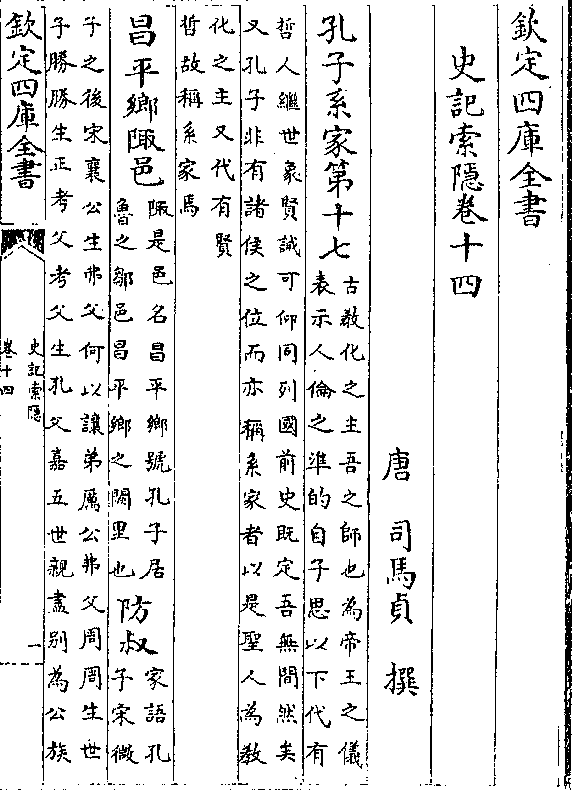 欽定四庫全書
史記索隠卷十四
唐 司馬貞 撰
孔子系家第十七
古教化之主吾之師也為帝王之儀
表示人倫之準的自子思以下代有
哲人繼世象賢誠可仰同列國前史既定吾無間然矣
又孔子非有諸侯之位而亦稱系家者以是聖人為教
化之主又代有賢
哲故稱系家焉
昌平鄉陬邑
陬是邑名昌平鄉號孔子居
魯之鄒邑昌平鄉之闕里也
防叔
家語孔
子宋微
子之後宋襄公生弗父何以讓弟厲公弗父周周生世
子勝勝生正考父考父生孔父嘉五世親盡别為公族
欽定四庫全書
史記索隠
卷十四
一